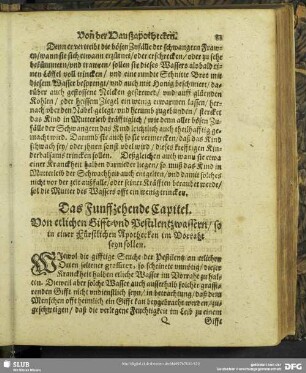 Von der Haußapothecken. 83
Denn er vertreibt die bösen Zufälle der schwangern Fraw-
en / wann sie sich etwann erzürnet / oder erschrecken / oder zu sehr
bekümmern / und trawren / sollen sie dieses Wassers alsobald ei-
nen Löffel voll trincken / und eine rundte Schnitte Brot mit
diesem Wasser besprengt / und auch mit Honig beschmiert / da-
rüber auch gestossene Nelcken gestrewet / und auff glüenden
Kohlen / oder heissem Ziegel ein wenig erwarmen lassen / her-
nach uber den Nabel gelegt / und herumb gebunden / stercket
das Kind in Mutterleib krefftig / wie denn aller bösen Zu-
fälle der Schwangern das Kind leichtlich auch theilhafftig ge-
macht wird. Darumb sie auch so sie vermercken / daß das Kind
schwach sey / oder ihnen sonst ubel wird / dieses krefftigen Kin-
derbalsams trincken sollen. Deßgleichen auch wann sie etwa
einer Kranckheit halben darnieder liegen / so muß das Kind in
Mutterleib der Schwachheit auch entgelten / und damit solches
nicht vor der zeit außfalle / oder seiner Kräfften beraubet werde /
sol die Mutter des Wassers offt ein wenig trincken.
Das Funffzehende Capitel.
Von etlichen Gifft- und Pestilentzwassern / so
in einer Fürstlichen Apothecken im Vorraht
seyn sollen.
WIewol die gifftige Seuche der Pestilentz an etlichen
Orten seltener grassiert / so scheinet es unnötig / dieser
Kranckheit halben etliche Wasser im Vorrahte zuhalt-
en. Dieweil aber solche Wasser auch ausserhalb solcher grassi-
renden Gifft nicht undienstlich seyn / in betrachtung / daß dem
Menschen offt heimlich ein Gifft kan beygebracht werden / zu-
geschweigen / daß die verlegene Feuchtigkeit im Leib zu einem
Q Gifft
SLUB
DFG